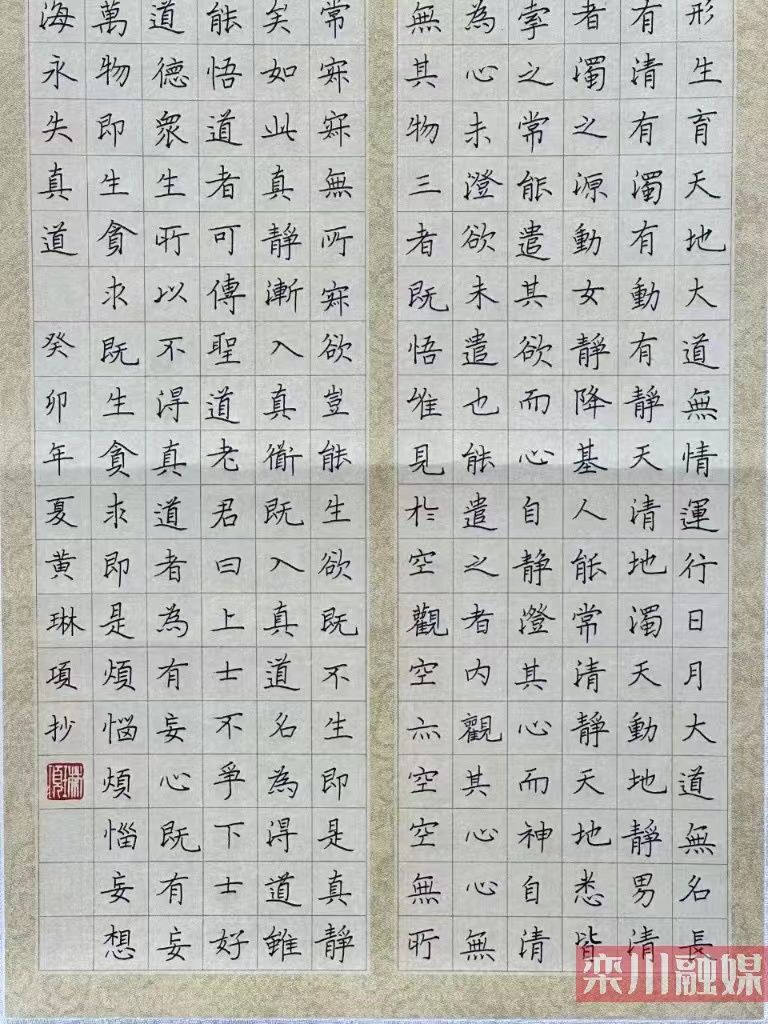 形生育天地大道無情運行日月大道無名長
有清有濁有動有靜天清地濁天動地靜男清
者濁之源動女靜降基人能常清靜天地悉皆
牽之常能遣其欲而心自静澄其心而神自清
為心未澄欲未遣也能遣之者内觀其心心無
無其物三者既悟唯見於空觀空亦空空無所
常寂寂無所寂欲豈能生欲既不生即是真靜
矣如此真靜漸入真衜既入真道名為得道雖
能悟道者可傳聖道老君曰上士不爭下士好
道德眾生所以不得真道者為有妄心既有妄
萬物即生貪求既生貪求即是煩惱煩惱妄想
海永失真道 癸卯年夏黄琳項抄
栾川融媒